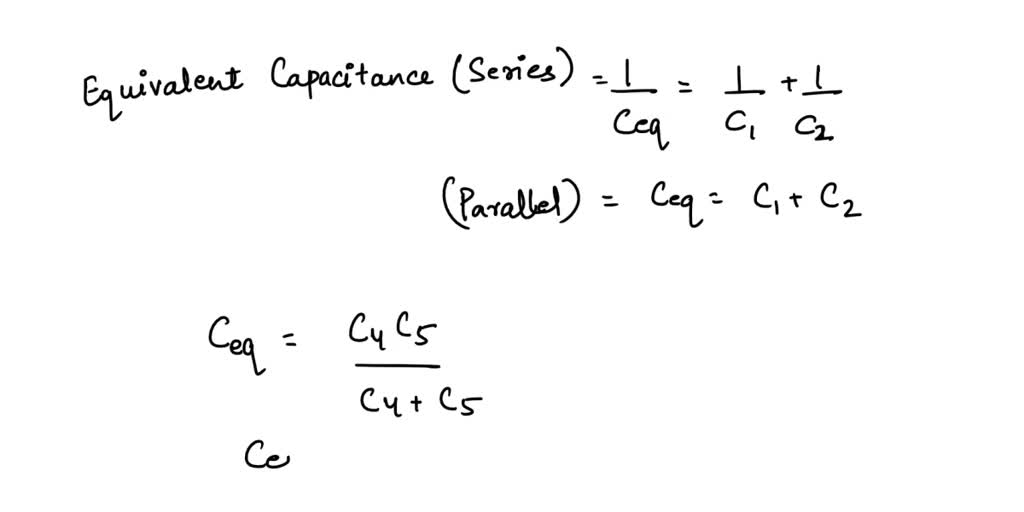 Equivalent Capacitance (Series) = 1/Ceq = 1/C1 + 1/C2
(Parallel) = Ceq = C1 + C2
Ceq = C4 C5 / C4 + C5
Ce